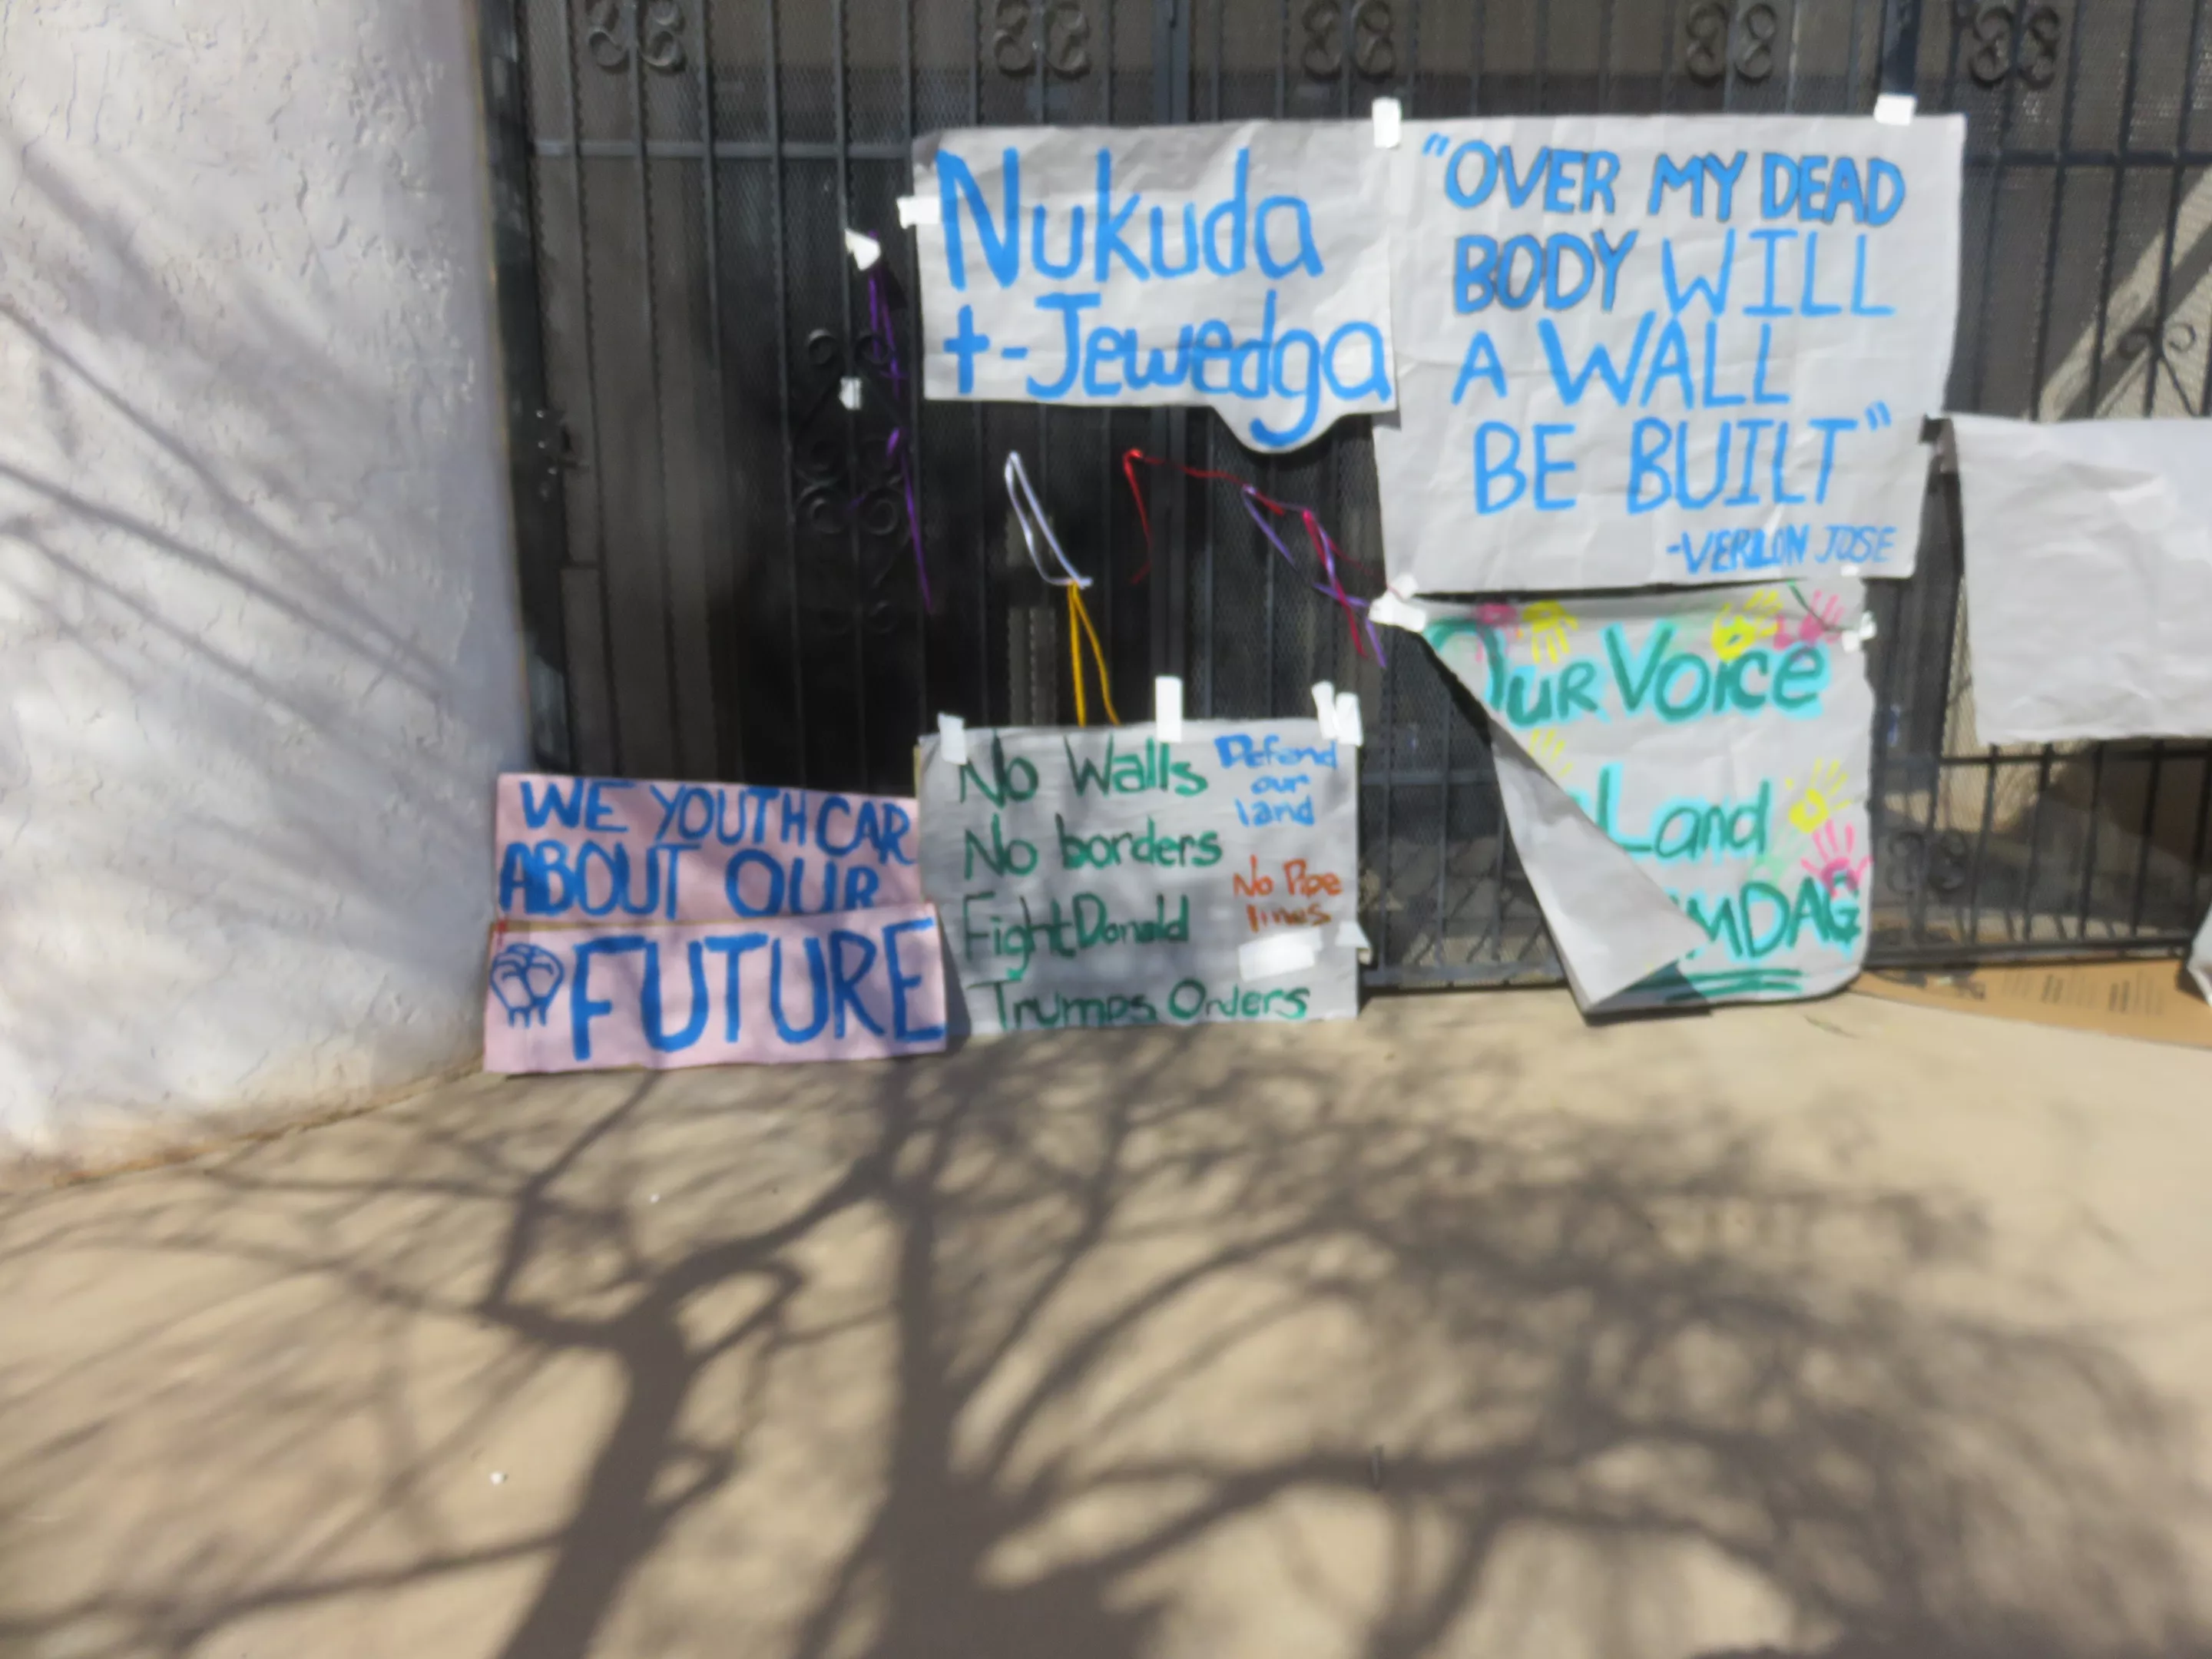 Nukuda
+-Jewedga
"OVER MY DEAD
BODY WILL
A WALL
BE BUILT"
-VERLON JOSE
WE YOUTH CAR
ABOUT OUR
FUTURE
No Walls
No borders
Fight Donald
Trumps Orders
Defend
our
land
No Pipe
lines
Our Voice
Land
MDAG